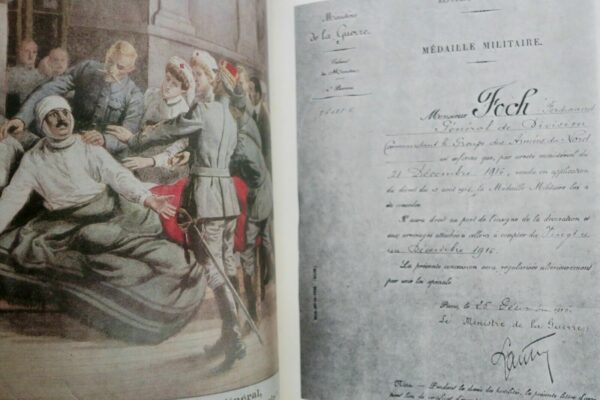 énéral,
Ministère
de la Guerre.
MÉDAILLE MILITAIRE.
Monsieur Foch Ferdinand
Général de Division
Commandant le Groupe des Armées du Nord
est informé que, par arrêté ministériel du
21 Décembre 1916, rendu en application
du décret du 13 août 1914, la Médaille Militaire lui a
été conférée.
Il aura droit au port de l'insigne de la décoration et
aux arrérages attachés à celle-ci à compter du Vingt et
un Décembre 1916.
La présente concession sera régularisée ultérieurement
par avis spécial.
Paris, le 25 Décembre
Le Ministre de la Guerre,
Nota : Pendant la durée des hostilités, la présente lettre